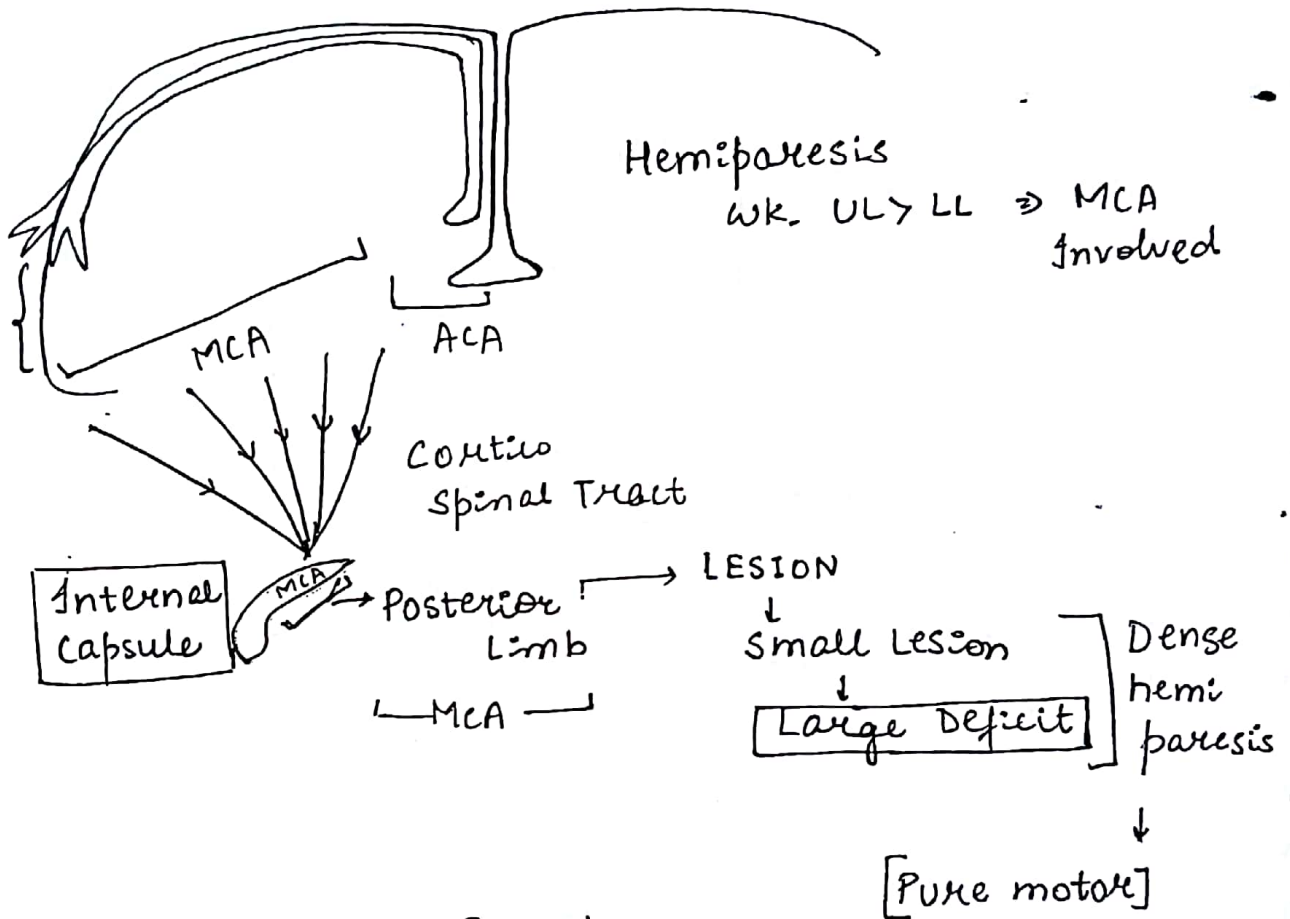 Hemiparesis
wk. UL > LL ⇒ MCA
Involved
MCA
ACA
Cortico
Spinal Tract
Internal
Capsule
MCA
Posterior
Limb
MCA
LESION
↓
Small Lesion
↓
Large Deficit
Dense
hemi
paresis
↓
[Pure motor]